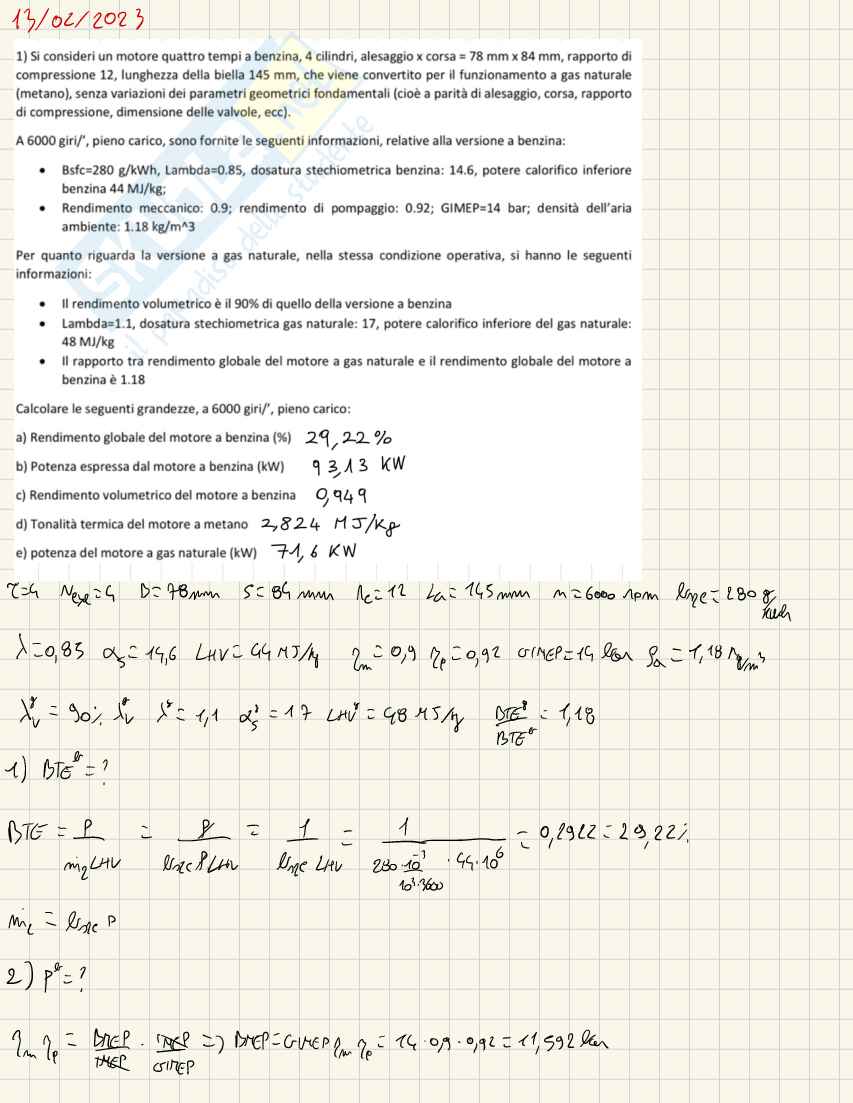 13/02/2023
1) Si consideri un motore quattro tempi a benzina, 4 cilindri, alesaggio x corsa = 78 mm x 84 mm, rapporto di
compressione 12, lunghezza della biella 145 mm, che viene convertito per il funzionamento a gas naturale
(metano), senza variazioni dei parametri geometrici fondamentali (cioè a parità di alesaggio, corsa, rapporto
di compressione, dimensione delle valvole, ecc).
A 6000 giri/', pieno carico, sono fornite le seguenti informazioni, relative alla versione a benzina:
• Bsfc=280 g/kWh, Lambda=0.85, dosatura stechiometrica benzina: 14.6, potere calorifico inferiore
benzina 44 MJ/kg;
• Rendimento meccanico: 0.9; rendimento di pompaggio: 0.92; GIMEP=14 bar; densità dell'aria
ambiente: 1.18 kg/m^3
Per quanto riguarda la versione a gas naturale, nella stessa condizione operativa, si hanno le seguenti
informazioni:
• Il rendimento volumetrico è il 90% di quello della versione a benzina
• Lambda=1.1, dosatura stechiometrica gas naturale: 17, potere calorifico inferiore del gas naturale:
48 MJ/kg
• Il rapporto tra rendimento globale del motore a gas naturale e il rendimento globale del motore a
benzina è 1.18
Calcolare le seguenti grandezze, a 6000 giri/', pieno carico:
a) Rendimento globale del motore a benzina (%) 29,22%
b) Potenza espressa dal motore a benzina (kW) 93,13 KW
c) Rendimento volumetrico del motore a benzina 0,949
d) Tonalità termica del motore a metano 2,824 MJ/Kg
e) potenza del motore a gas naturale (kW) 71,6 KW
τ=4 D=78mm S=84 mm rc=12 La=145mm n=6000 rpm bsfc=280 g/kWh
λ=0,85 αs=14,6 LHV=44MJ/kg ηm=0,9 ηp=0,92 GIMEP=14 bar ρa=1,18 kg/m³
λv^g = 90% λv^b λ^g=1,1 αs^g=17 LHV^g=48 MJ/kg BTE^g/BTE^b = 1,18
1) BTE^b = ?
BTE = P/(ṁ LHV) = P/(bsfc P LHV) = 1/(bsfc LHV) = 1/(280·10^-3/(10^3·3600) · 44·10^6) = 0,2922 = 29,22%
= bsfc P
2) P^b = ?
ηm ηp = BMEP/IMEP · IMEP/GIMEP => BMEP=GIMEP ηm ηp = 14·0,9·0,92 = 11,592 bar